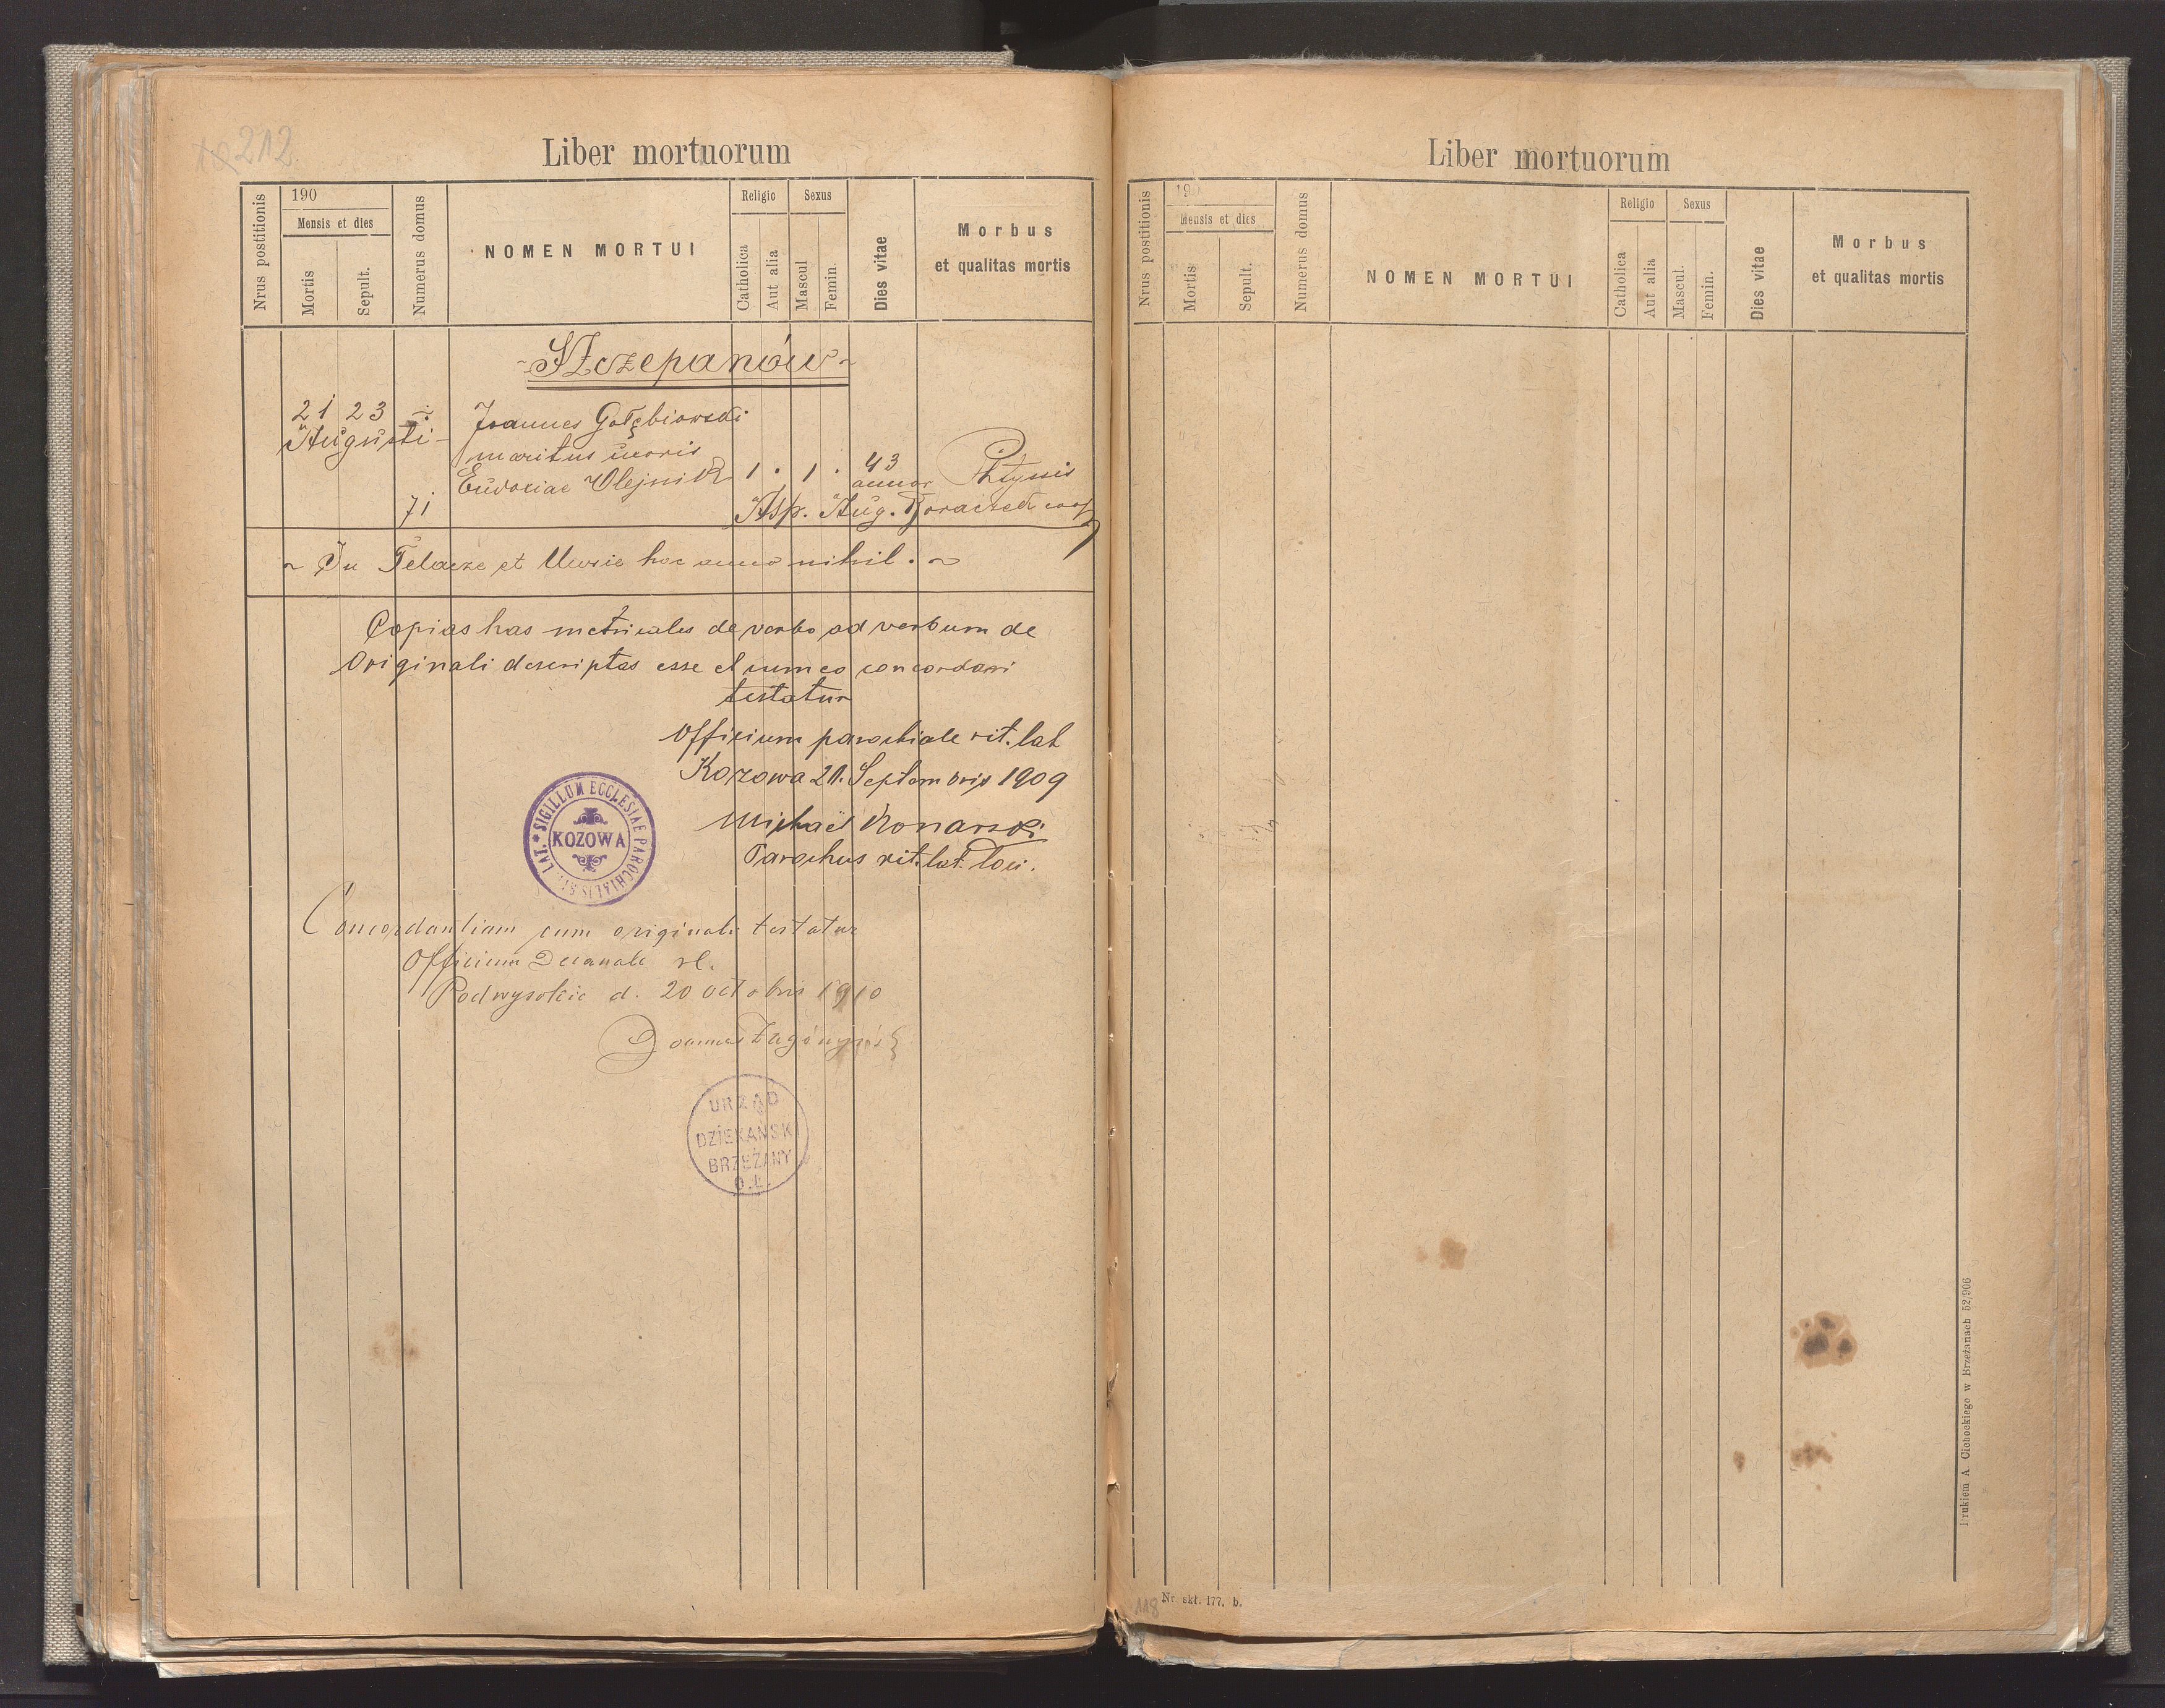 212
Liber mortuorum
Nrus postitionis
190
Mensis et dies
Mortis
Sepult.
Numerus domus
NOMEN MORTUI
Religio
Catholica
Aut alia
Sexus
Mascul
Femin.
Dies vitae
Morbus
et qualitas mortis
Szczepanów
21 23
Augusti
Joannes Gołębiowski
maritus uxoris
Eudoxiae Olejnik 1 . 1 . 43 Phtysis
annor
71 Asp. Aug.
In Telacze et Uwsie hoc anno nihil.
Copias has metricales de verbo ad verbum de
Originali descriptas esse et cum eo concordari
testatur
Officium parochiale rit. lat
Kozowa 21. Septembris 1909
Michael Konarski
Parochus rit. lat. loci.
* SIGILLUM ECCLESIAE PAROCHIALIS RIT. LAT.
KOZOWA
Concordantiam cum originali testatur
Officium Decanale rl.
Podwysokie d. 20 octobris 1910
Joannes
URZĄD
DZIEKAŃSKI
BRZEŻANY
O.Ł.
Liber mortuorum
Nrus postitionis
190
Mensis et dies
Mortis
Sepult.
Numerus domus
NOMEN MORTUI
Religio
Catholica
Aut alia
Sexus
Mascul.
Femin.
Dies vitae
Morbus
et qualitas mortis
Drukiem A. Cichockiego w Brzeżanach 52,906
118
Nr. skł. 177. b.